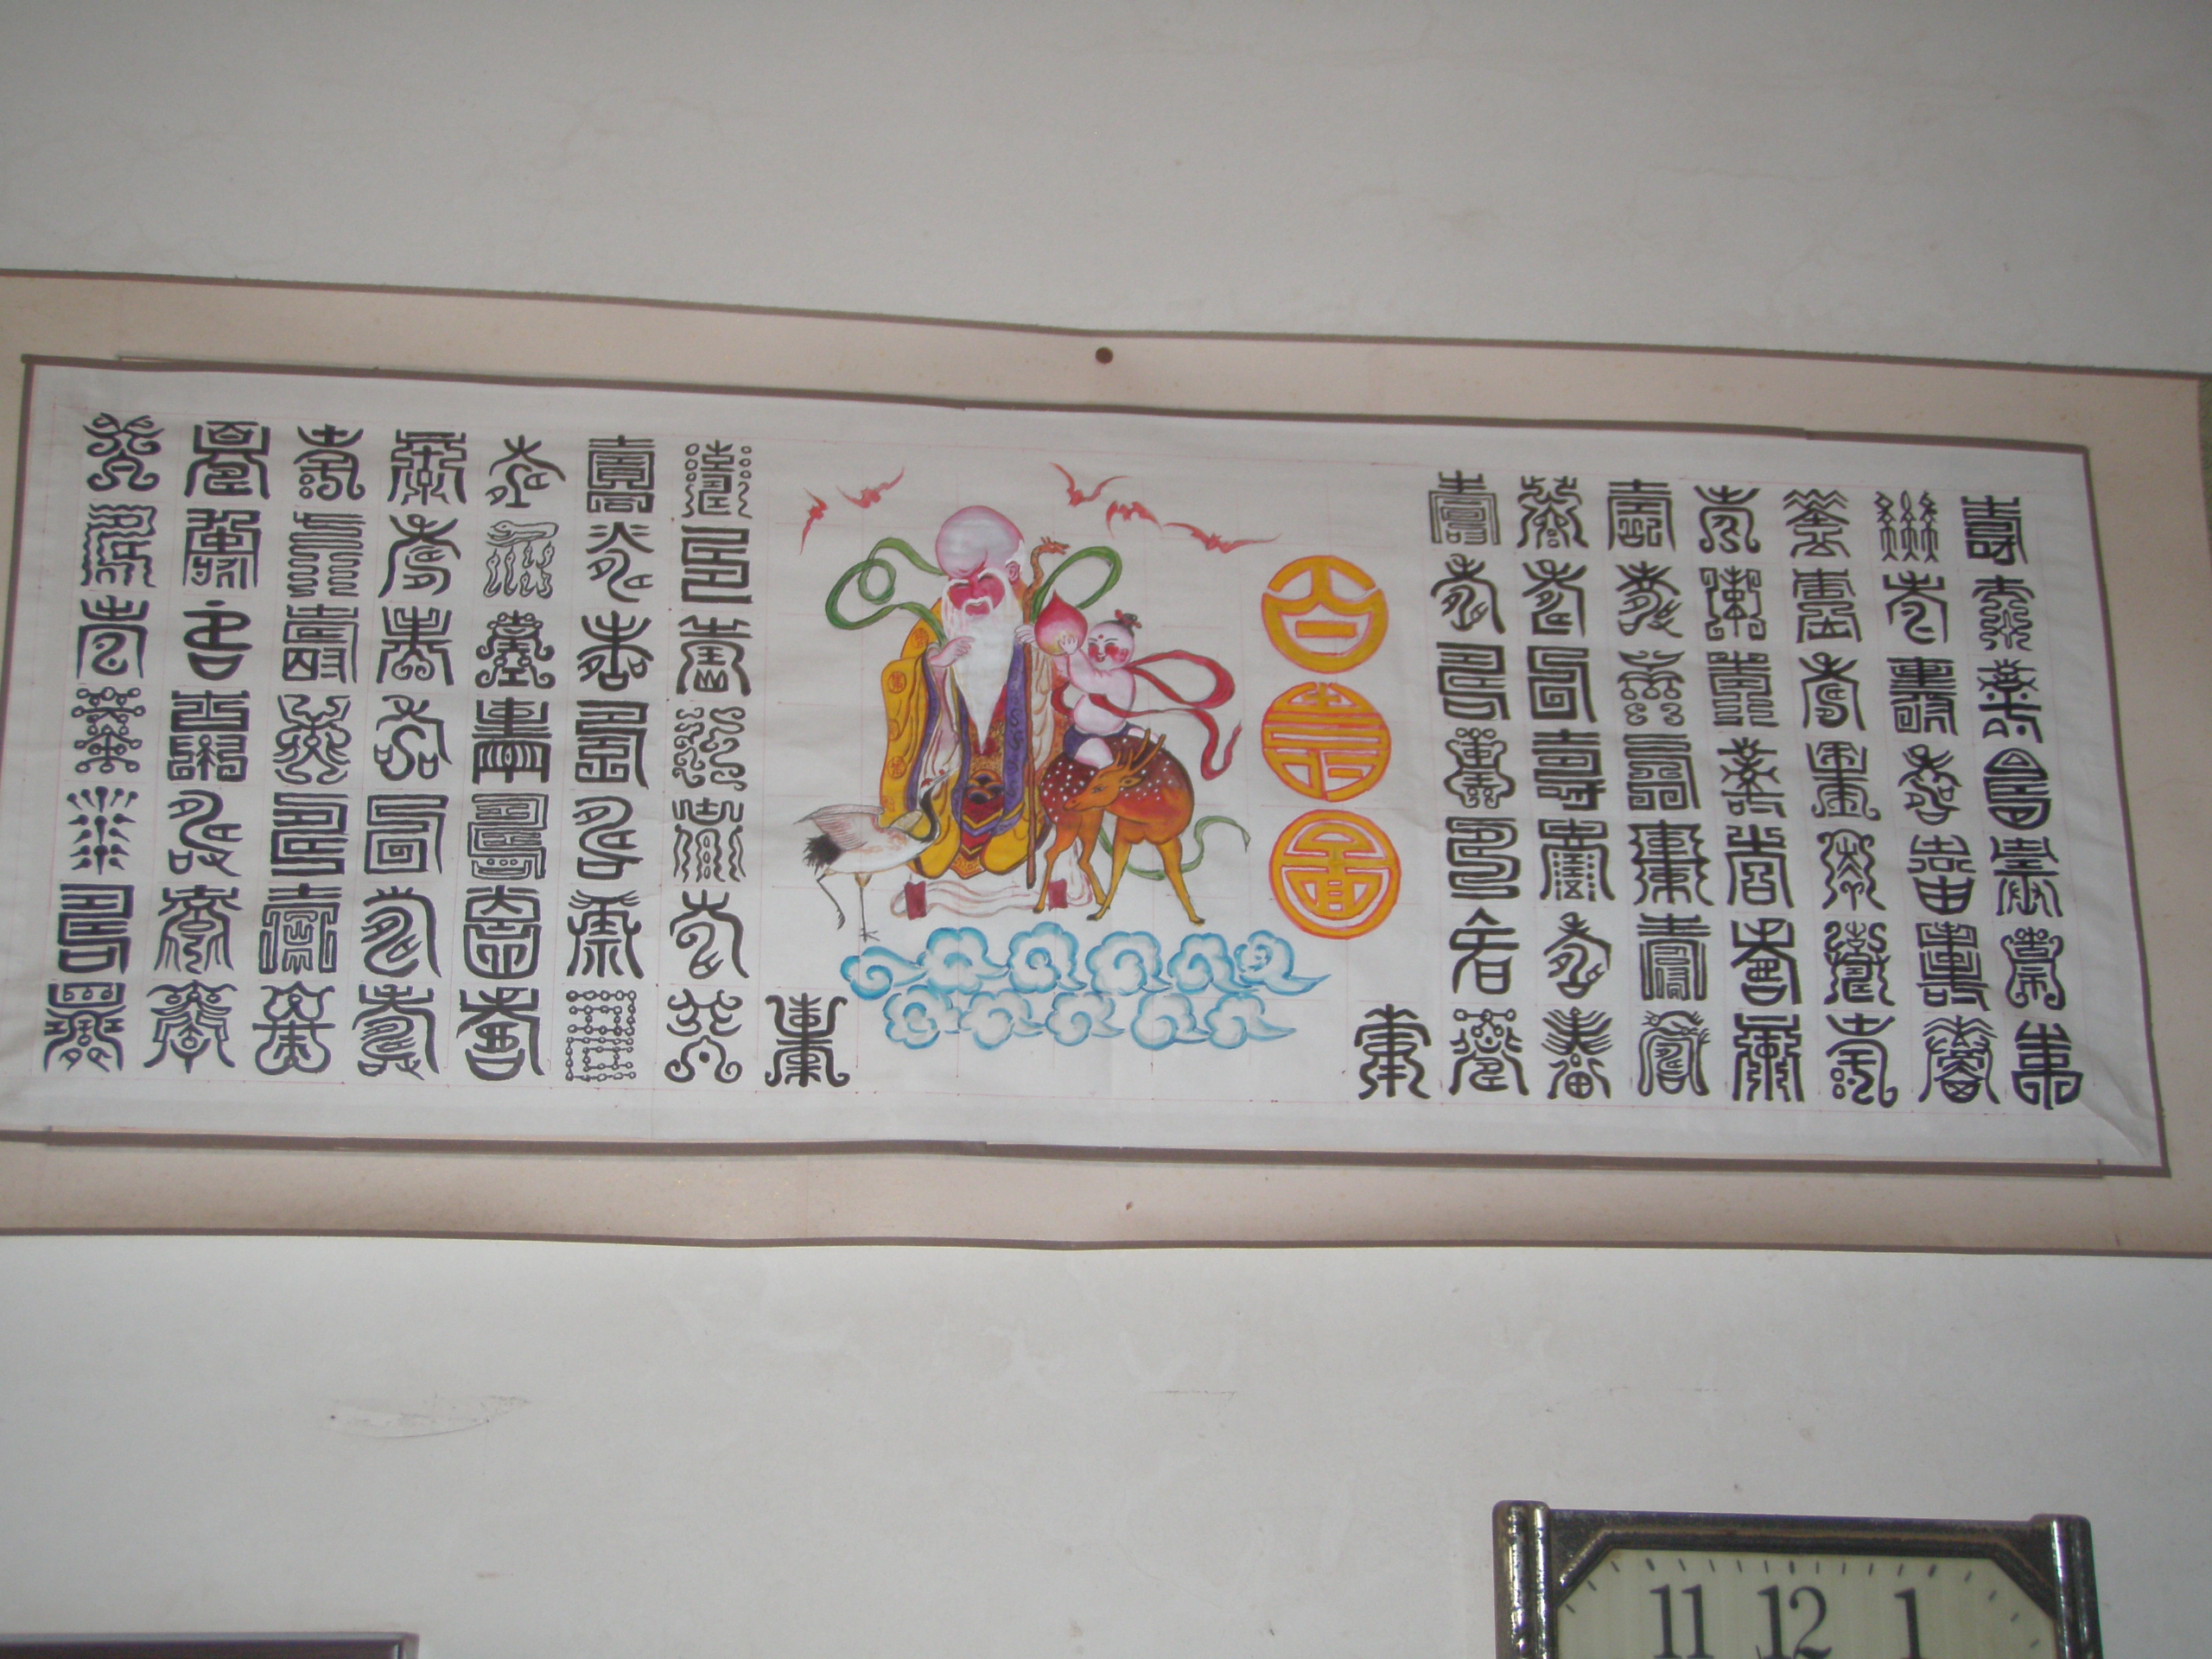 壽壽壽壽壽壽壽
壽壽壽壽壽壽壽
壽壽壽壽壽壽壽
壽壽壽壽壽壽壽
壽壽壽壽壽壽壽
壽壽壽壽壽壽壽
壽壽壽壽壽壽壽
壽
百壽圖
壽
壽壽壽壽壽壽壽
壽壽壽壽壽壽壽
壽壽壽壽壽壽壽
壽壽壽壽壽壽壽
壽壽壽壽壽壽壽
壽壽壽壽壽壽壽
壽壽壽壽壽壽壽
11 12 1